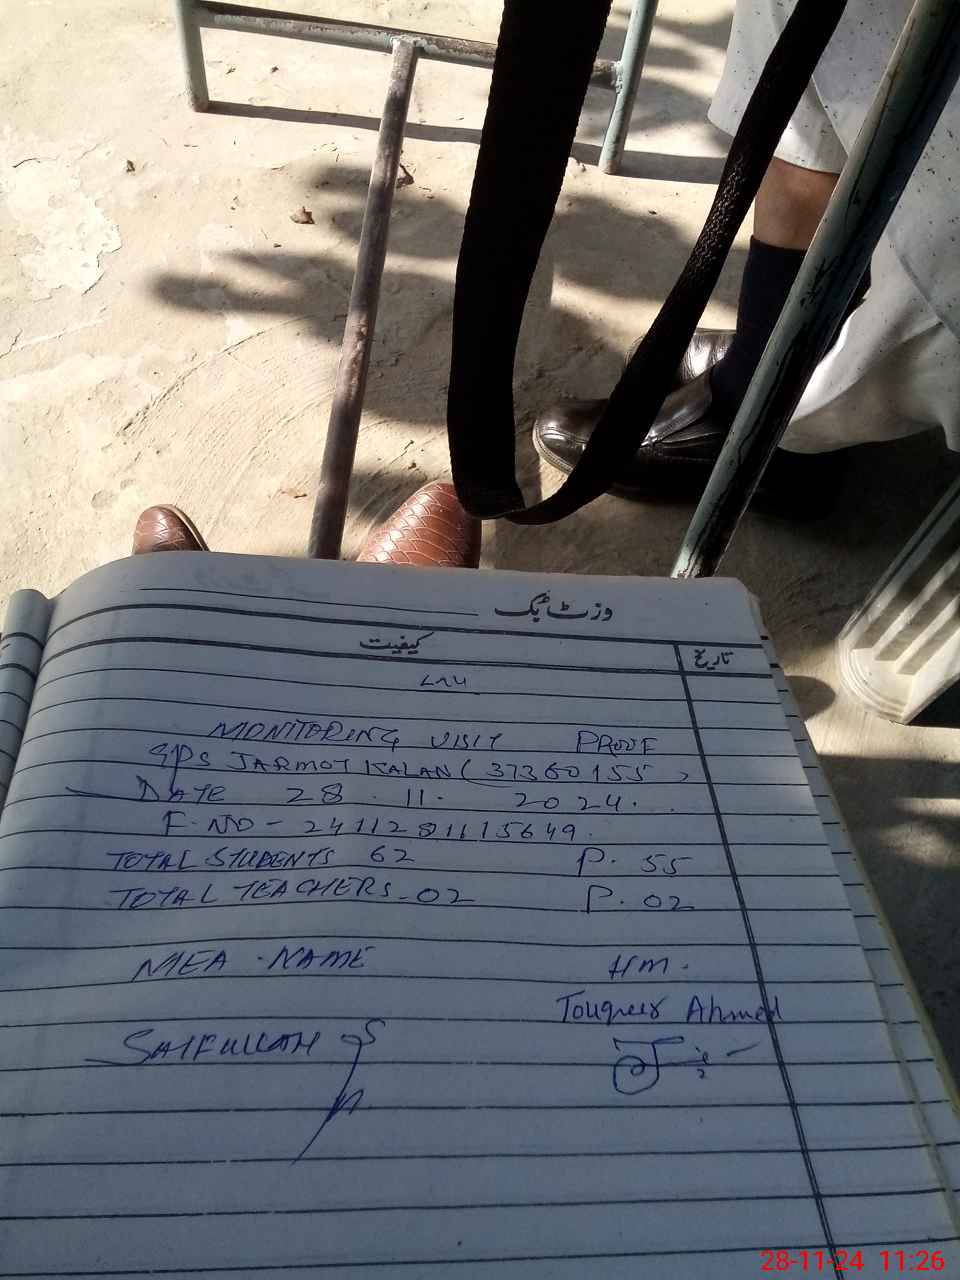 وزٹ بک
کیفیت تاریخ
۷۸۶
MONITORING VISIT PROOF
GPS JARMOT KALAN (37360155)
DATE 28.11.2024.
F.NO - 2411281115649.
TOTAL STUDENTS 62 P. 55
TOTAL TEACHERS-02 P. 02
MEA. NAME HM.
Touqeer Ahmed
SAIFULLAH
28-11-24 11:26